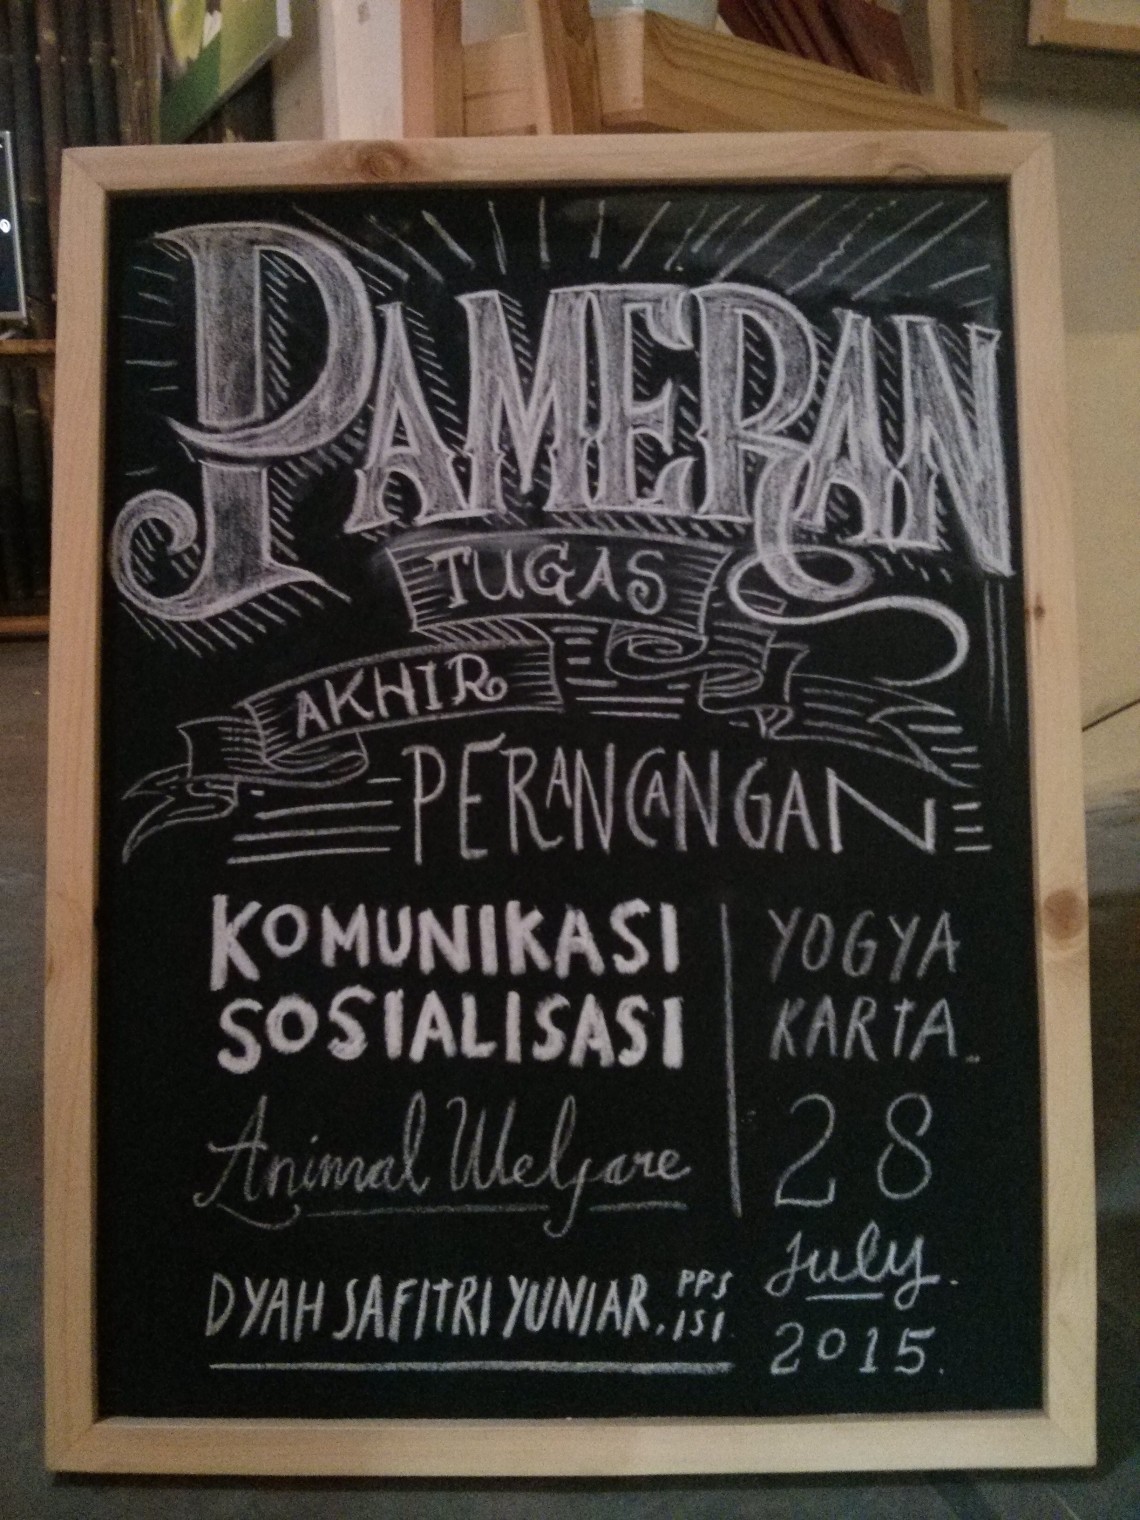 PAMERAN
TUGAS
AKHIR
PERANCANGAN
KOMUNIKASI
SOSIALISASI
Animal Welfare
DYAH SAFITRI YUNIAR. PPS
ISI.
YOGYA
KARTA..
28
July.
2015.